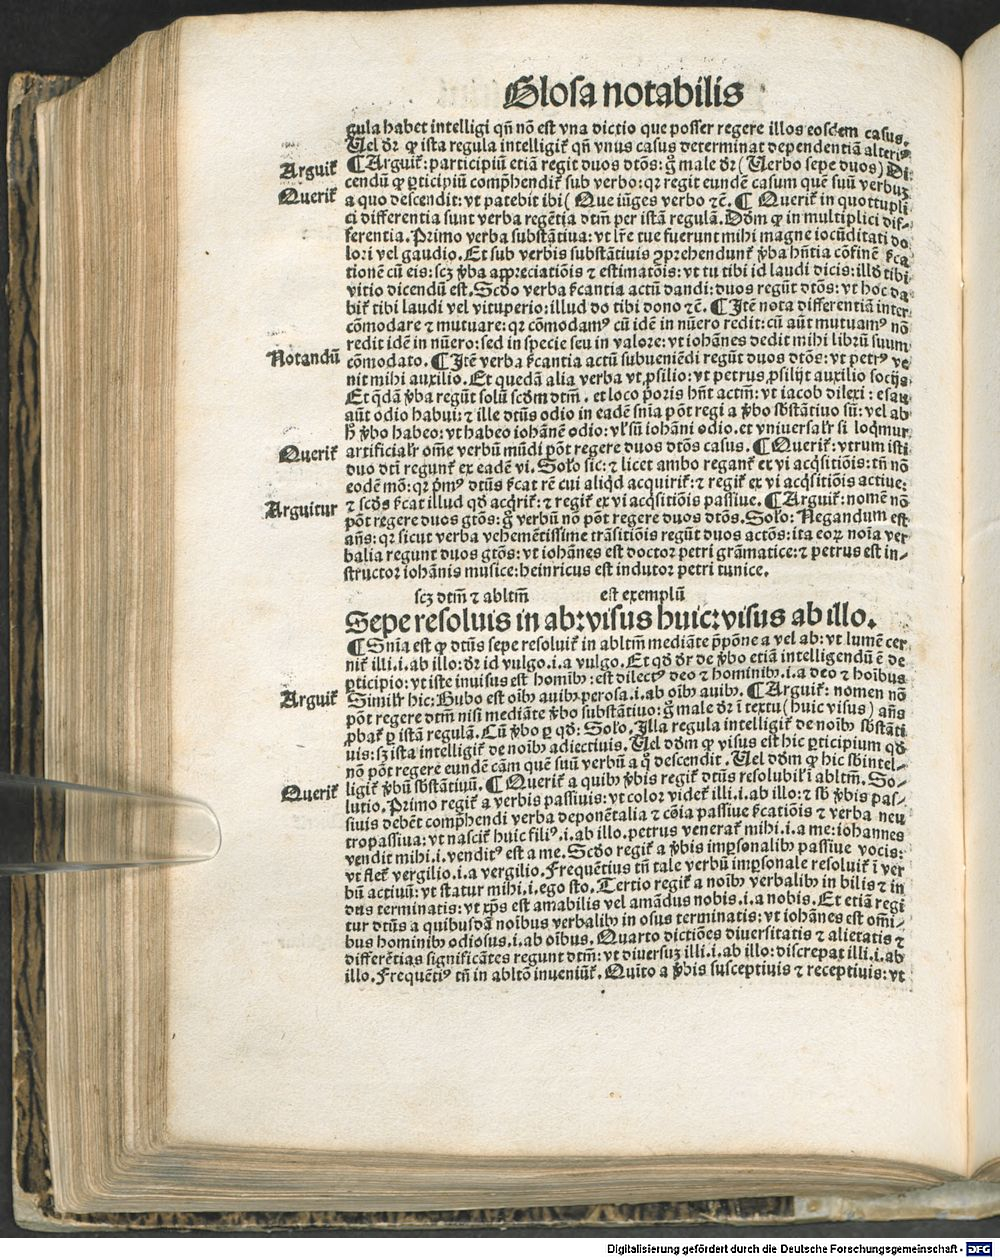 Glosa notabilis
gula habet intelligi qñ nõ est vna dictio que posser regere illos eosdem casus.
Uel dr̃ ꝙ ista regula intelligit̃ qñ vnus casus determinat dependentiã alteriꝰ
Arguit̃
¶ Arguit̃: participiũ etiã regit duos dtõs: gͦ male dr̃ (Uerbo sepe duos) Di
cendũ ꝙ ꝑticipiũ comp̃hendit̃ sub verbo: qꝛ regit eundẽ casum quẽ suũ verbuꝫ
Querit̃
a quo descendit: vt patebit ibi (Que iũges verbo ⁊c̃. ¶ Querit̃ in quottupli
ci differentia sunt verba regẽtia dtm̃ per istã regulã. Dd̃m ꝙ in multiplici dif-
ferentia. Primo verba substãtiua: vt lr̃e tue fuerunt mihi magne iocũditati do
lori vel gaudio. Et sub verbis substãtiuis ꝯprehendunt̃ ṽba hñtia cõfinẽ s̃ca
tionẽ cũ eis: scꝫ ṽba app̃reciatiõis ⁊ estimatõis: vt tu tibi id laudi dicis: illd̃ tibi
vitio dicendũ est. Scd̃o verba s̃cantia actũ dandi: duos regũt dtõs: vt hoc da
bit̃ tibi laudi vel vituperio: illud do tibi dono ⁊c̃. ¶ Itẽ nota differentiã inter
cõmodare ⁊ mutuare: qꝛ cõmodamꝰ cũ idẽ in nũero redit: cũ aũt mutuamꝰ nõ
redit idẽ in nũero: sed in specie seu in valore: vt iohãnes dedit mihi librũ suum
Notandũ
cõmodato. ¶ Itẽ verba s̃cantia actũ subueniẽdi regũt duos dtõs: vt petrꝰ ve
nit mihi auxilio. Et quedã alia verba vt ꝓsilio: vt petrus ꝓsilijt auxilio socijs
Et q̃dã ṽba regũt solũ scd̃m dtm̃. et loco p̃oris hñt actm̃: vt iacob dilexi: esau
aũt odio habui: ⁊ ille dtũs odio in eadẽ sñia põt regi a ṽbo sb̃stãtiuo sũ: vel ab
h̃ ṽbo habeo: vt habeo iohãnẽ odio: vl̃ sũ iohãni odio. et vniuersalr̃ si loq̃mur
Querit̃
artificialr̃ om̃e verbũ mũdi põt regere duos dtõs casus. ¶ Querit̃: vtrum isti
duo dtĩ regunt̃ ex eadẽ vi. Solõ sic: ⁊ licet ambo regant̃ ex vi acq̃sitiõis: tñ nõ
eodẽ mõ: qꝛ p̃mꝰ dtũs s̃cat rẽ cui aliq̃d acquirit̃: ⁊ regit̃ ex vi acq̃sitiõis actiue:
Arguitur
⁊ scd̃s s̃cat illud qd̃ acq̃rit̃: ⁊ regit̃ ex vi acq̃sitiõis passiue. ¶ Arguit̃: nomẽ nõ
põt regere duos gtõs: gͦ verbũ nõ põt regere duos dtõs. Solõ: Negandum est
añs: qꝛ sicut verba vehemẽtissime trãsitiõis regũt duos actõs: ita eoꝝ noĩa ver
balia regunt duos gtõs: vt iohãnes est doctor petri grãmatice: ⁊ petrus est in-
structor iohãnis musice: heinricus est indutor petri tunice.
scꝫ dtm̃ ⁊ abltm̃ est exemplũ
Sepe resoluis in ab: visus huic: visus ab illo.
¶ Sñia est ꝙ dtũs sepe resoluit̃ in abltm̃ mediãte p̃põne a vel ab: vt lumẽ cer
nit̃ illi .i. ab illo: dr̃ id vulgo .i. a vulgo. Et qd̃ dr̃ de ṽbo etiã intelligendũ ẽ de
ꝑticipio: vt iste inuisus est homĩbꝰ: est dilectꝰ deo ⁊ hominibꝰ .i. a deo ⁊ hoĩbus
Arguit̃
Similr̃ hic: Bubo est oĩbꝰ auibꝰ perosa .i. ab oĩbꝰ auibꝰ. ¶ Arguit̃: nomen nõ
põt regere dtm̃ nisi mediãte ṽbo substãtiuo: gͦ male dr̃ ĩ textu (huic visus) añs
ꝓbat̃ ꝑ istã regulã. Cũ ṽbo ꝑ qd̃: Solõ. Illa regula intelligit̃ de noĩbꝰ sb̃stãti
uis: sꝫ ista intelligit̃ de noĩbꝰ adiectiuis. Uel dd̃m ꝙ visus est hic ꝑticipium qd̃
nõ põt regere eundẽ cãm quẽ suũ verbũ a q̃ descendit. Uel dd̃m ꝙ hic sb̃intel-
Querit̃
ligit̃ ṽbũ sb̃stãtiuũ. ¶ Querit̃ a quibꝰ ṽbis regit̃ dtũs resolubilr̃ ĩ abltm̃. So-
lutio. Primo regit̃ a verbis passiuis: vt color videt̃ illi .i. ab illo: ⁊ sb̃ ṽbis pas-
siuis debẽt comp̃hendi verba deponẽtalia ⁊ cõia passiue s̃catiõis ⁊ verba neu
tropassiua: vt nascit̃ huic filiꝰ .i. ab illo. petrus venerat̃ mihi .i. a me: iohannes
vendit mihi .i. venditꝰ est a me. Scd̃o regit̃ a ṽbis imꝑsonalibꝰ passiue vocis:
vt flet̃ vergilio .i. a vergilio. Frequẽtius tñ tale verbũ imꝑsonale resoluit̃ ĩ ver
bũ actiuũ: vt statur mihi .i. ego sto. Tertio regit̃ a noĩbꝰ verbalibꝰ in bilis ⁊ in
dus terminatis: vt xp̃s est amabilis vel amãdus nobis .i. a nobis. Et etiã regi
tur dtũs a quibusdã noĩbus verbalibꝰ in osus terminatis: vt iohãnes est om̃i-
bus hominibꝰ odiosus .i. ab oĩbus. Quarto dictiões diuersitatis ⁊ alietatis ⁊
differẽtias significãtes regunt dtm̃: vt diuersuꝫ illi .i. ab illo: discrepat illi .i. ab
illo. Frequẽtiꝰ tñ in abltõ inueniũt̃. Quito a ṽbis susceptiuis ⁊ receptiuis: vt
Digitalisierung gefördert durch die Deutsche Forschungsgemeinschaft - DFG